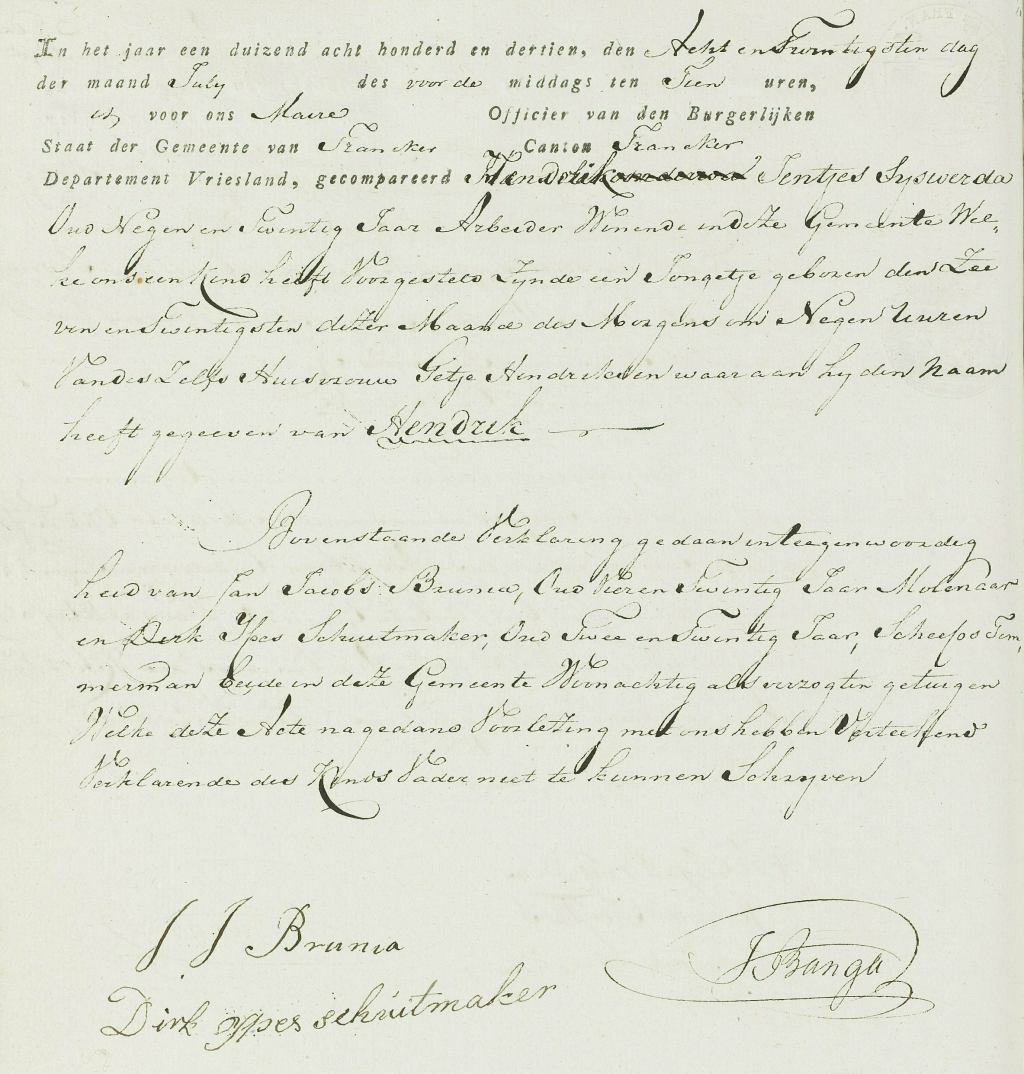 In het jaar een duizend acht honderd en dertien, den Acht en Twintigsten dag
der maand July des voorde middags ten Tien uren,
is, voor ons Maire Officier van den Burgerlijken
Staat der Gemeente van Francker Canton Francker
Departement Vriesland, gecompareerd Hendrik Jentjes Sijswerda
Oud Negen en Twintig Jaar Arbeider Wonende in deze Gemeente Wel-
ke ons een Kind heeft Voorgesteld Zynde een Jongetje geboren den Zee
ven en Twintigsten dezer Maand des Morgens om Negen Uuren
Van des Zelfs Huisvrouw Getje Hendriks en waar aan hy den Naam
heeft gegeeven van Hendrik
Bovenstaande Verklaring gedaan in teegenwoordig
heid van Jan Jacobs Brunia, Oud Vier en Twintig Jaar Molenaar
en Dirk Ypes Schuitmaker, Oud Twee en Twintig Jaar, Scheeps Tim,
merman beide in deze Gemeente Woonachtig als verzogten getuigen
Welke deze Acte na gedane Voorlezing met ons hebben Verteekend
Verklarende des Kinds Vader niet te kunnen Schryven
J J Brunia
J Banga
Dirk ypes schuitmaker